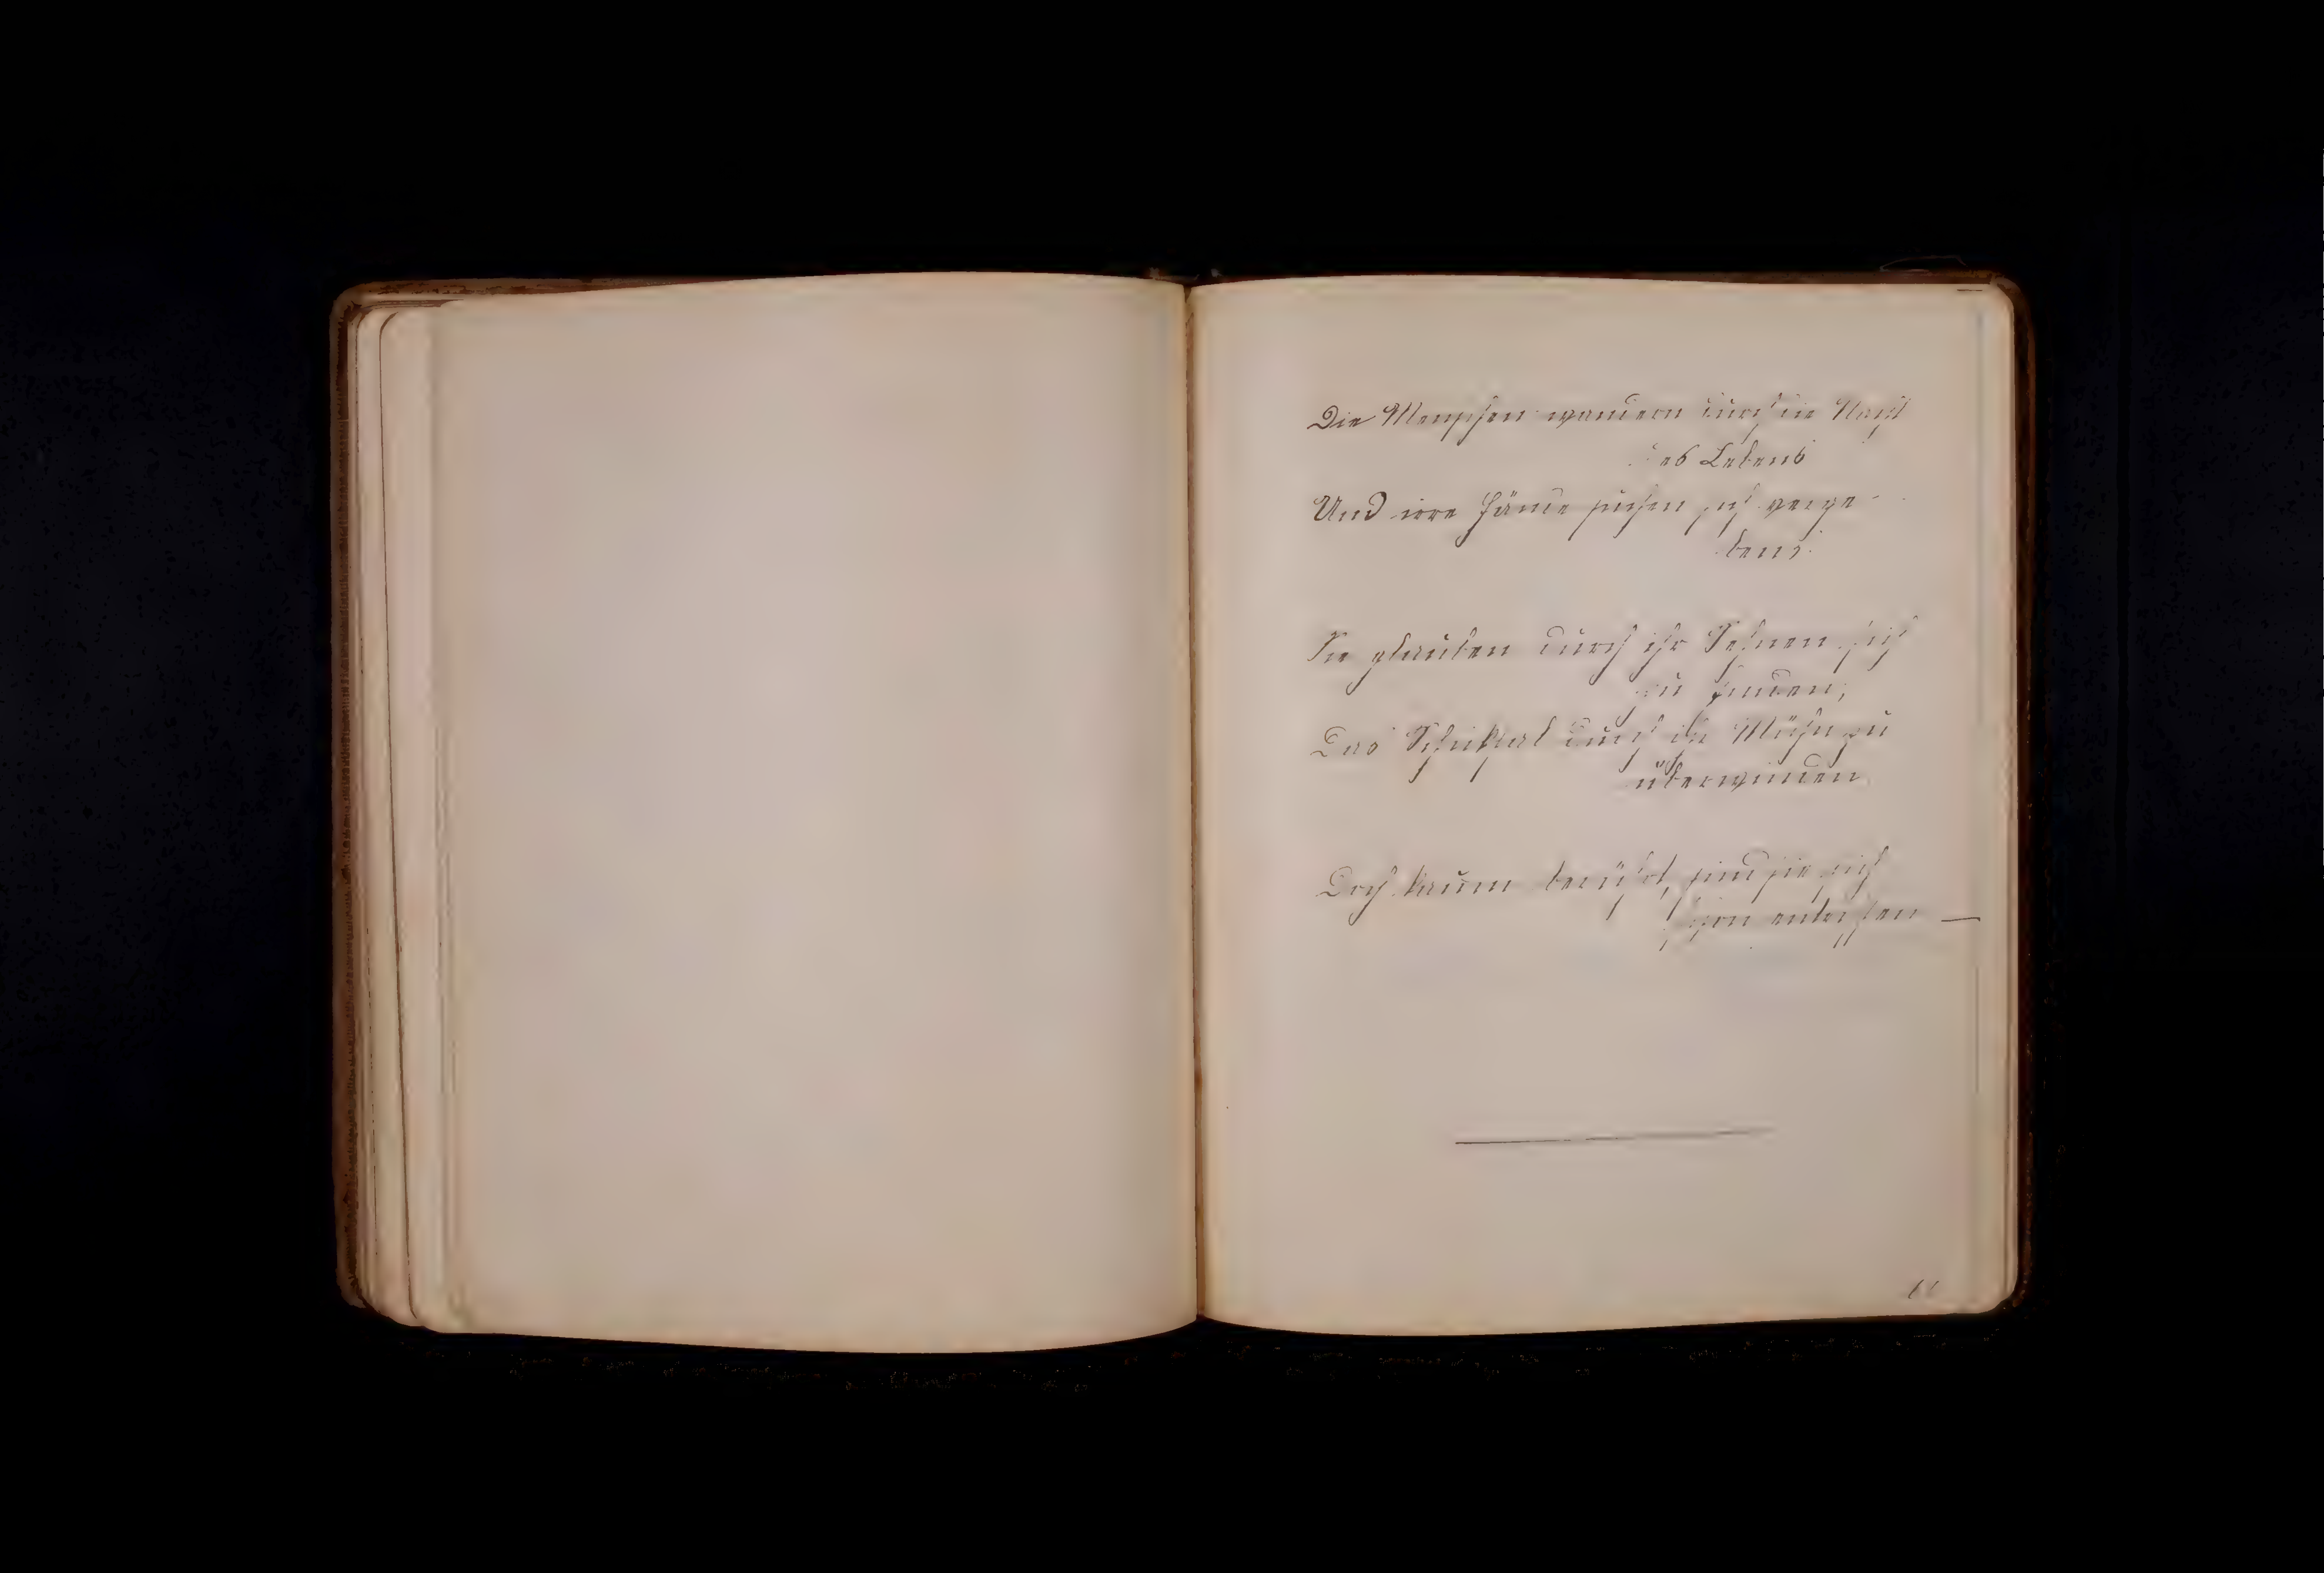 Die Menschen wandern durch die Nacht
des Lebens
Und irre Hände suchen sich verge-
bens.
Sie glauben durch ihr Sehnen sich
zu finden,
Das Schicksal durch die Mühn zu
überwinden
Doch kaum berührt, sind sie sich
schon entrissen —